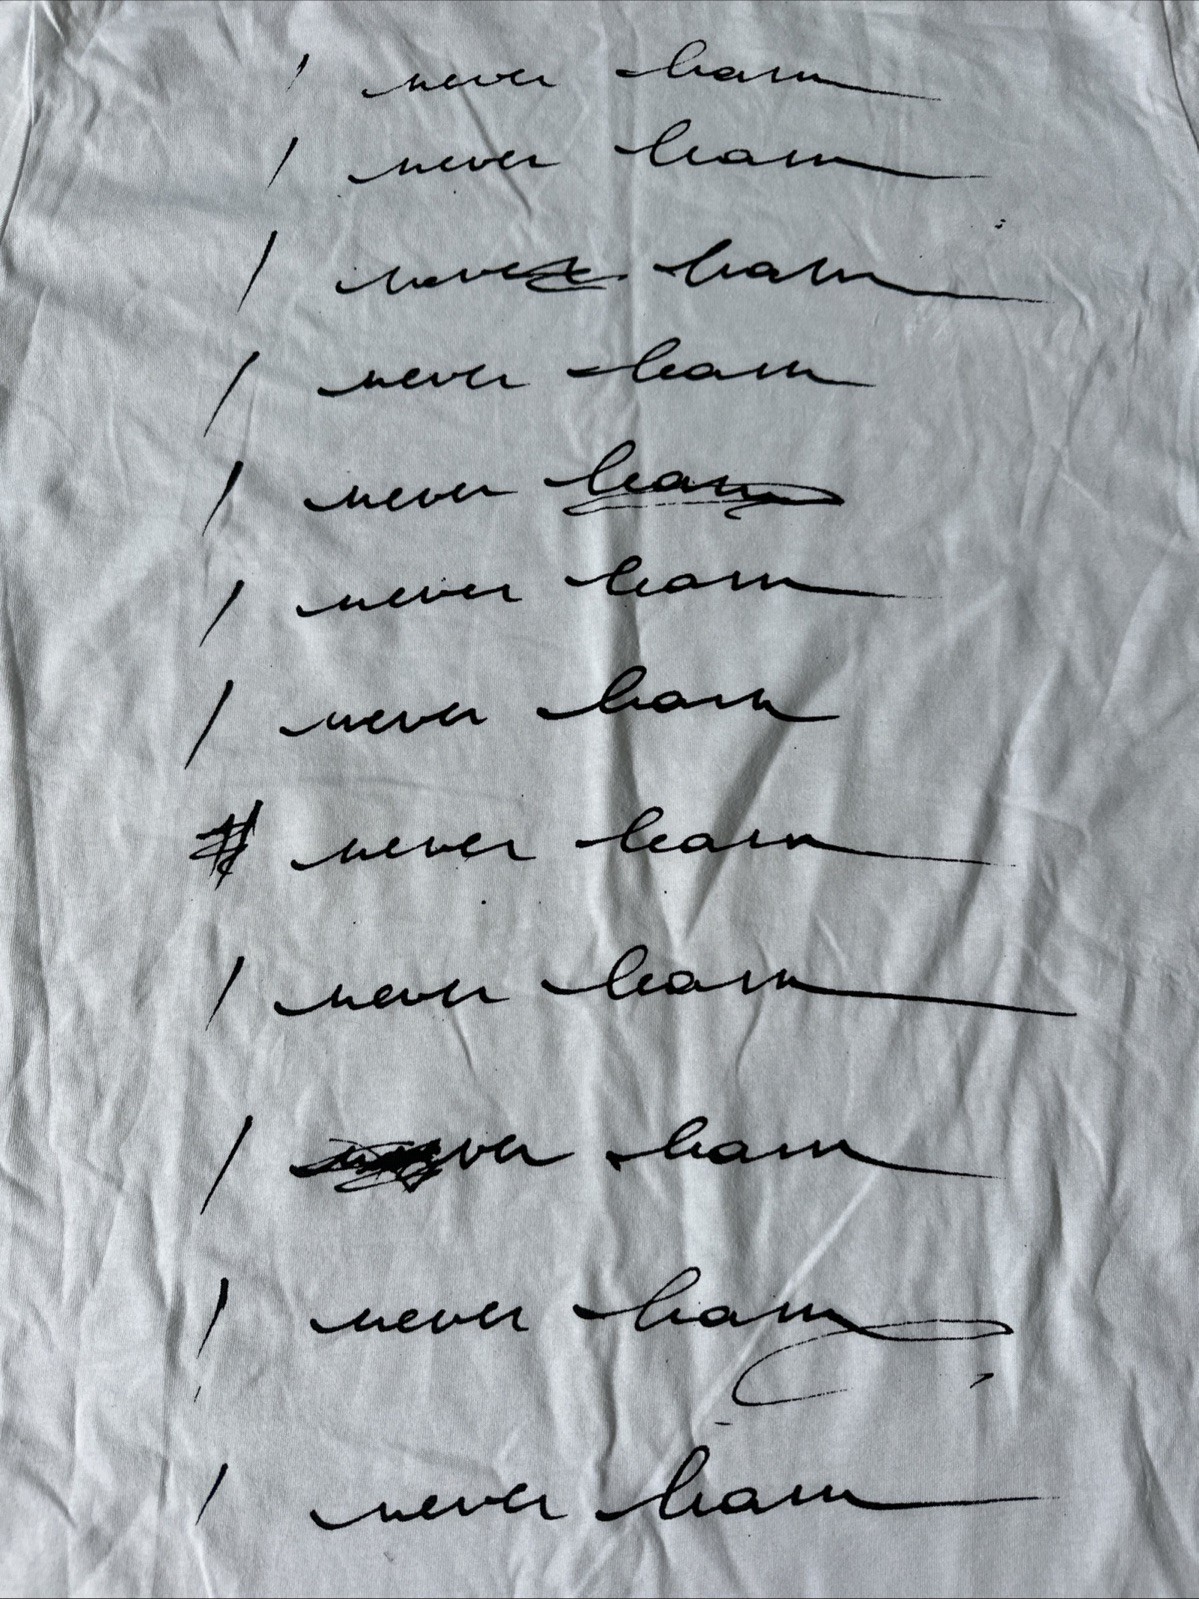 I never learn
I never learn
I never learn
I never learn
I never learn
I never learn
I never learn
I never learn
I never learn
I never learn
I never learn
I never learn